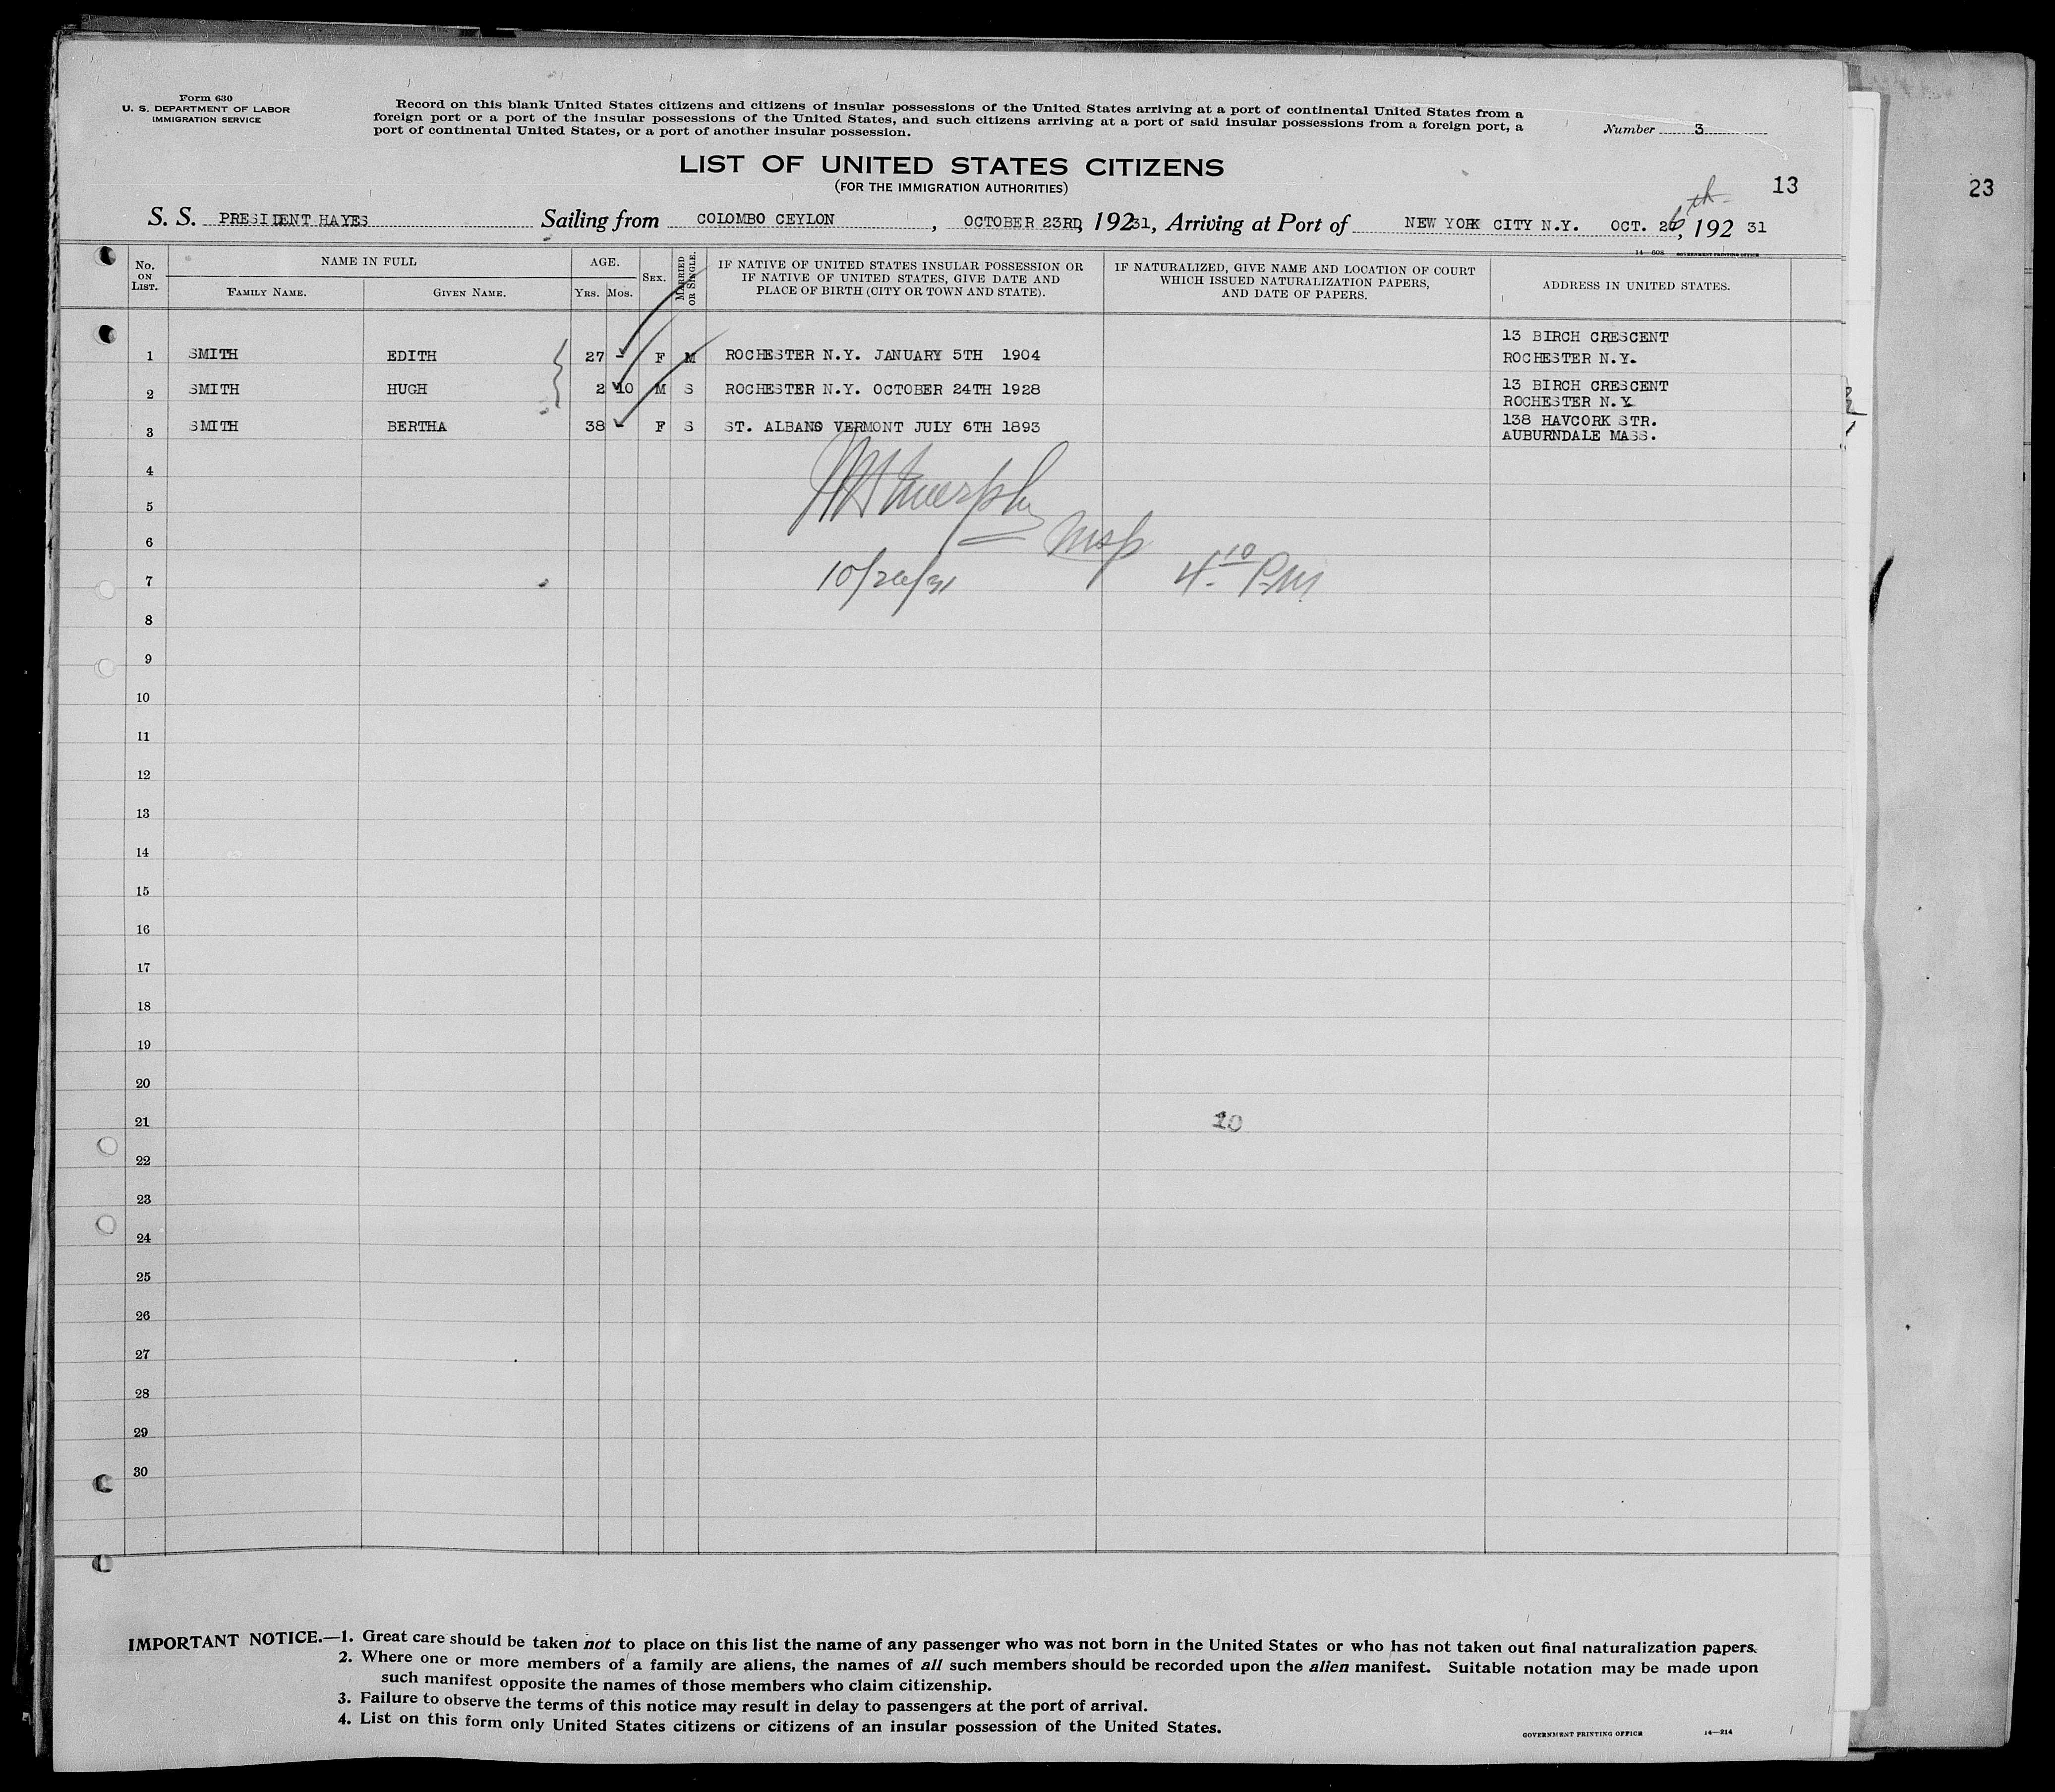 Form 630
U. S. DEPARTMENT OF LABOR
IMMIGRATION SERVICE
Record on this blank United States citizens and citizens of insular possessions of the United States arriving at a port of continental United States from a
foreign port or a port of the insular possessions of the United States, and such citizens arriving at a port of said insular possessions from a foreign port, a
port of continental United States, or a port of another insular possession.
Number 3
LIST OF UNITED STATES CITIZENS
(FOR THE IMMIGRATION AUTHORITIES)
13
23
S. S. PRESIDENT HAYES Sailing from COLOMBO CEYLON, OCTOBER 23RD, 19231, Arriving at Port of NEW YORK CITY N.Y. OCT. 26th, 192 31
14—608 GOVERNMENT PRINTING OFFICE
No. ON LIST.
NAME IN FULL
FAMILY NAME.
GIVEN NAME.
AGE.
YRS. MOS.
SEX.
MARRIED OR SINGLE.
IF NATIVE OF UNITED STATES INSULAR POSSESSION OR
IF NATIVE OF UNITED STATES, GIVE DATE AND
PLACE OF BIRTH (CITY OR TOWN AND STATE).
IF NATURALIZED, GIVE NAME AND LOCATION OF COURT
WHICH ISSUED NATURALIZATION PAPERS,
AND DATE OF PAPERS.
ADDRESS IN UNITED STATES.
13 BIRCH CRESCENT
1 SMITH EDITH 27 - F M ROCHESTER N.Y. JANUARY 5TH 1904 ROCHESTER N.Y.
2 SMITH HUGH 2 10 M S ROCHESTER N.Y. OCTOBER 24TH 1928 13 BIRCH CRESCENT
ROCHESTER N.Y
3 SMITH BERTHA 38 - F S ST. ALBANS VERMONT JULY 6TH 1893 138 HAVCORK STR.
AUBURNDALE MASS.
4
5 Murphy
6 Insp
7 10/26/31 4.10 P.M.
8
9
10
11
12
13
14
15
16
17
18
19
20
21 10
22
23
24
25
26
27
28
29
30
IMPORTANT NOTICE.—1. Great care should be taken not to place on this list the name of any passenger who was not born in the United States or who has not taken out final naturalization papers.
2. Where one or more members of a family are aliens, the names of all such members should be recorded upon the alien manifest. Suitable notation may be made upon
such manifest opposite the names of those members who claim citizenship.
3. Failure to observe the terms of this notice may result in delay to passengers at the port of arrival.
4. List on this form only United States citizens or citizens of an insular possession of the United States.
GOVERNMENT PRINTING OFFICE 14—214